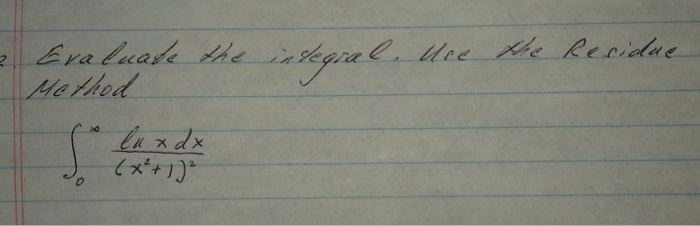 2. Evaluate the integral. Use the Residue
Method
∫₀^∞ ln x dx / (x²+1)²